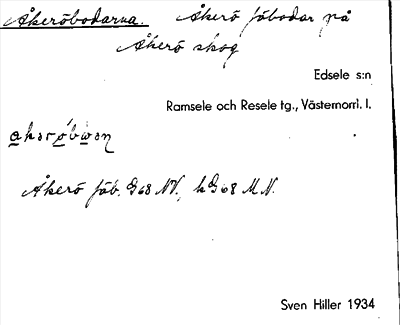 Åkeröbodarna. Åkerö fäbodar på
Åkerö skog
Edsele s:n
Ramsele och Resele tg., Västernorrl. l.
Åkerö fäb. G68 NV, hG68 MN.
Sven Hiller 1934